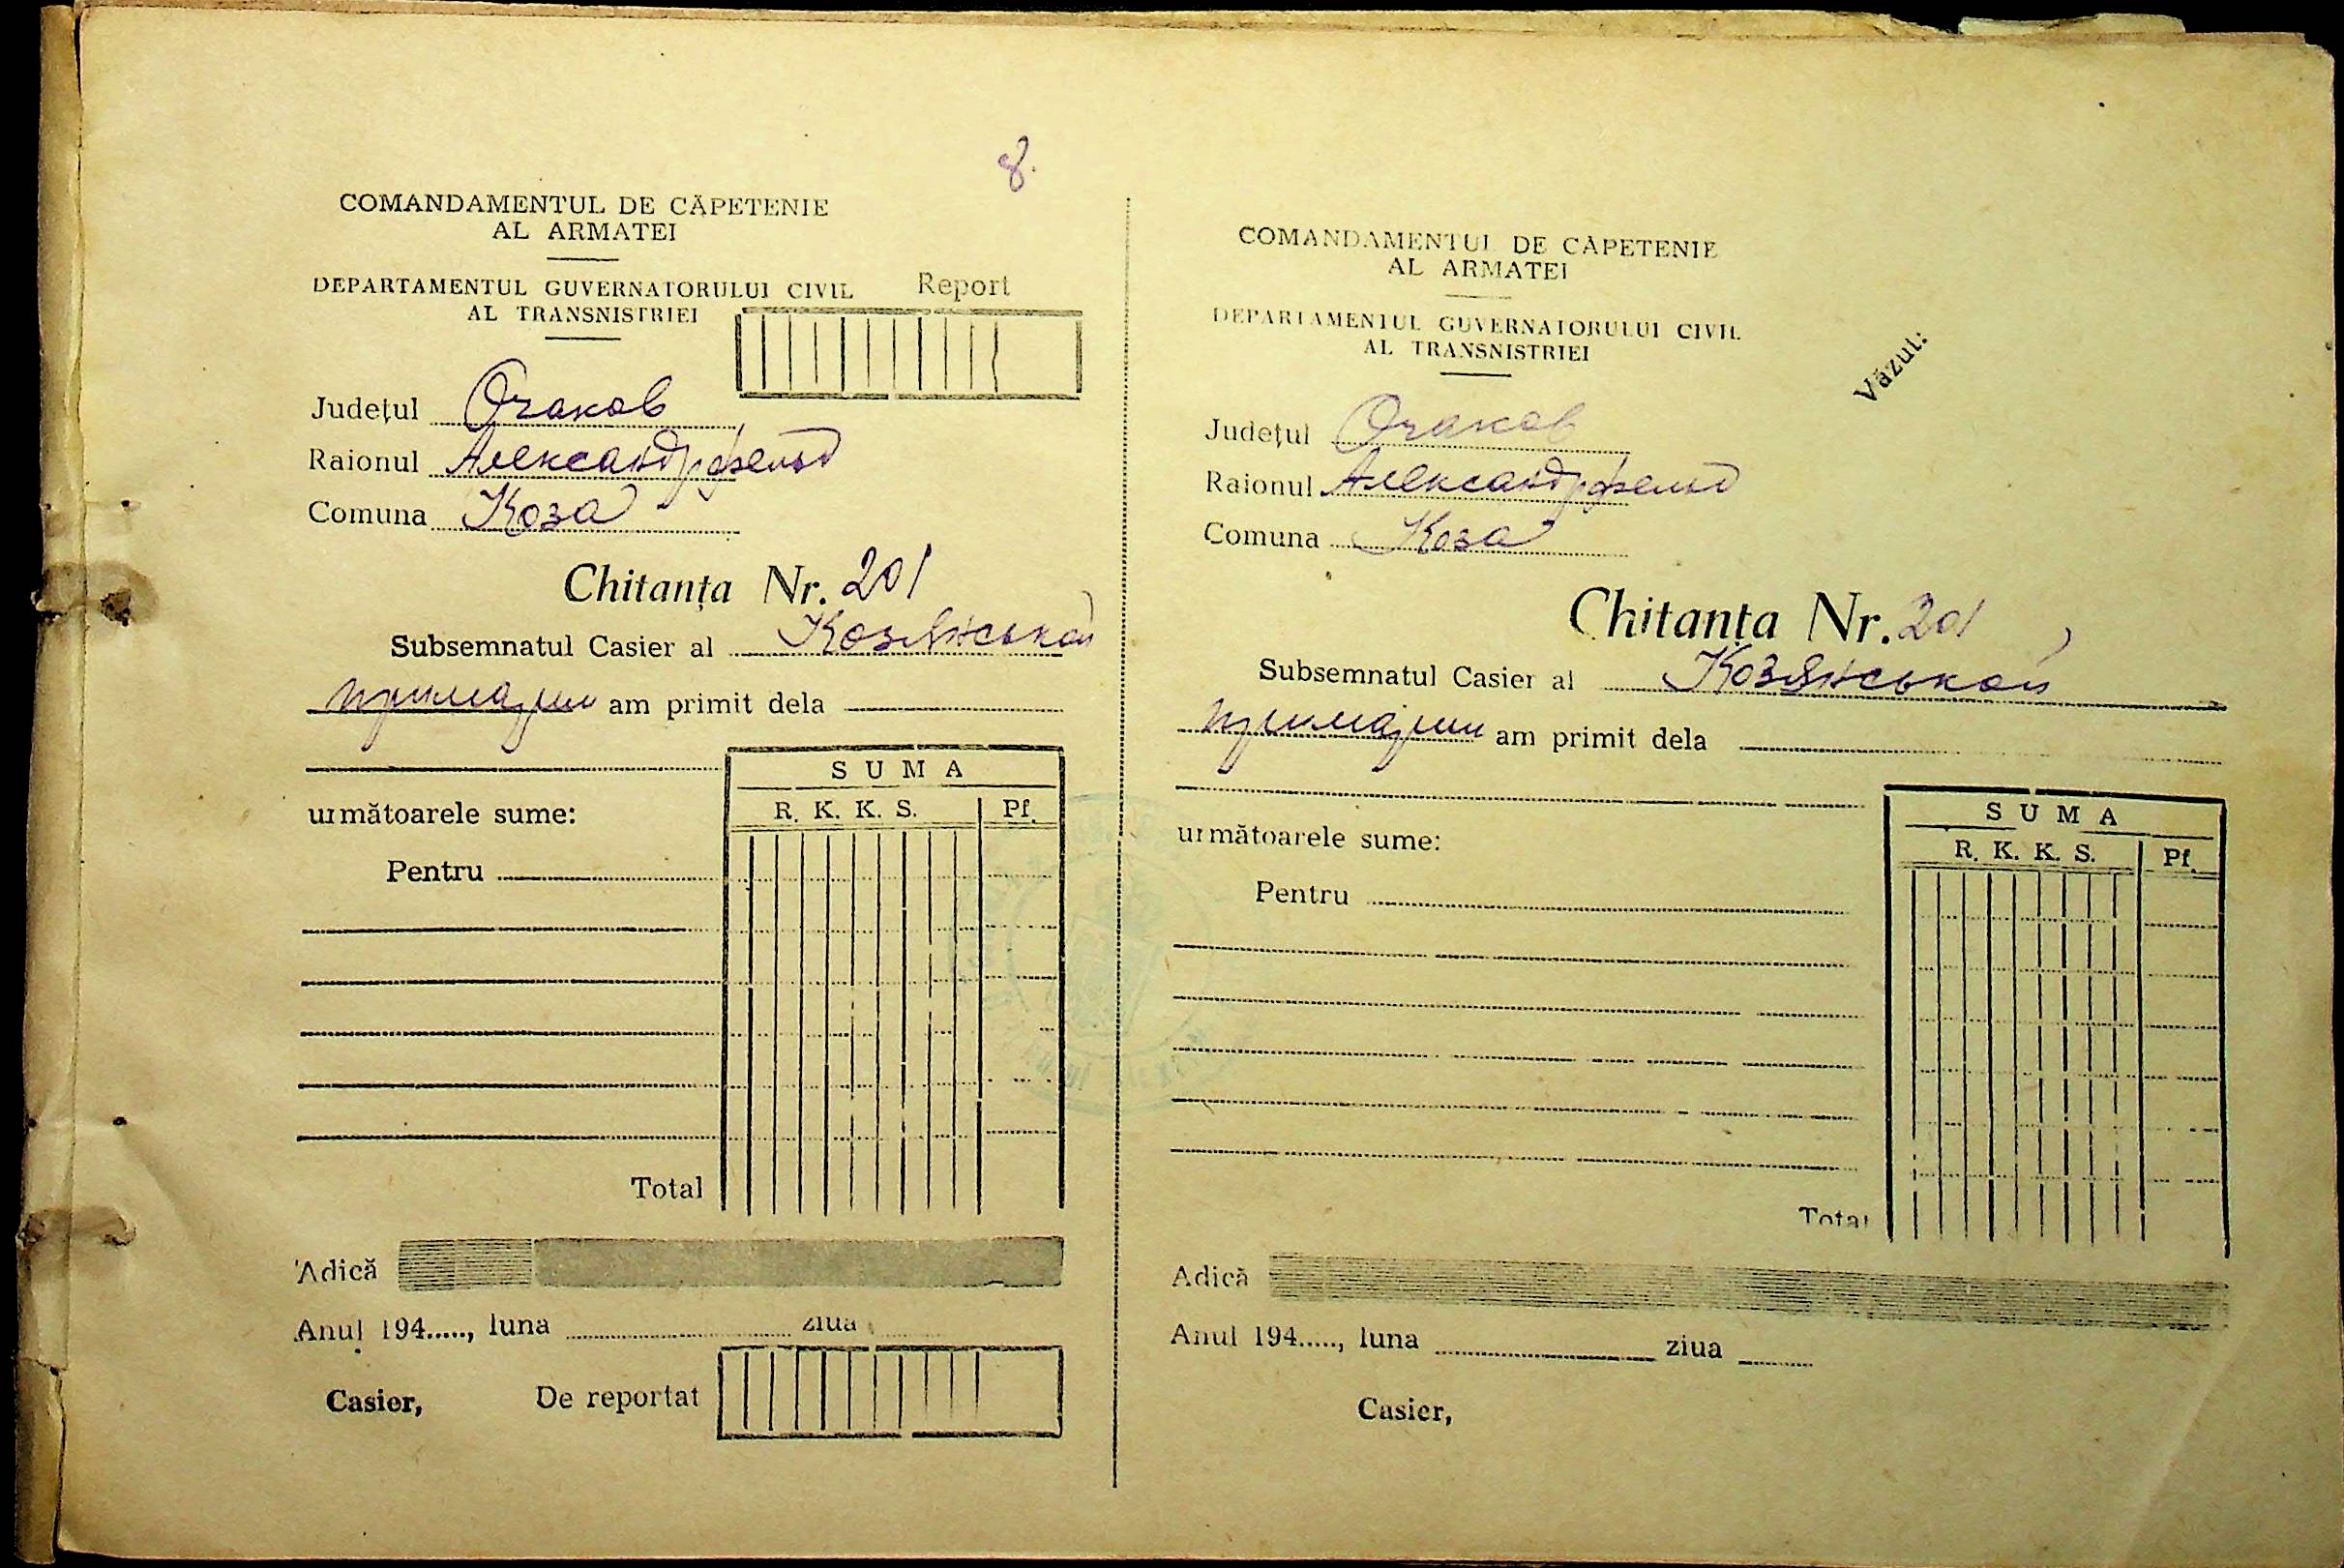 8.
COMANDAMENTUL DE CĂPETENIE
AL ARMATEI
DEPARTAMENTUL GUVERNATORULUI CIVIL
AL TRANSNISTRIEI
Report
Județul Очаков
Raionul Александрфельд
Comuna Коза
Chitanța Nr. 201
Subsemnatul Casier al Козянської
примарии am primit dela
următoarele sume:
SUMA
R. K. K. S. Pf.
Pentru
Total
Adică
Anul 194....., luna ziua
Casier, De reportat
COMANDAMENTUL DE CĂPETENIE
AL ARMATEI
DEPARTAMENTUL GUVERNATORULUI CIVIL
AL TRANSNISTRIEI
Văzut:
Județul Очаков
Raionul Александрфельд
Comuna Коза
Chitanța Nr. 201
Subsemnatul Casier al Козянської
примарии am primit dela
următoarele sume:
SUMA
R. K. K. S. Pf.
Pentru
Total
Adică
Anul 194....., luna ziua
Casier,